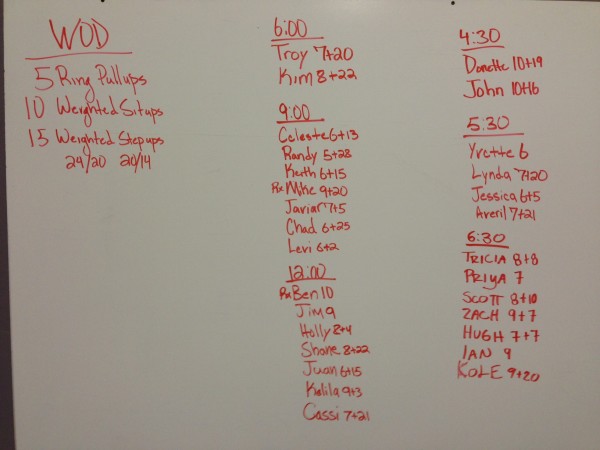 WOD
5 Ring Pullups
10 Weighted Situps
15 Weighted Stepups
24/20 20/14
6:00
Troy 7+20
Kim 8+22
9:00
Celeste 6+13
Randy 5+28
Keith 6+15
Rx Mike 9+20
Javiar 7+5
Chad 6+25
Levi 6+2
12:00
Rx Ben 10
Jim 9
Holly 8+4
Shane 8+22
Juan 6+15
Kalila 9+3
Cassi 7+21
4:30
Donette 10+19
John 10+16
5:30
Yvette 6
Lynda 7+20
Jessica 6+5
Averil 7+21
6:30
TRICIA 8+8
PRIYA 7
SCOTT 8+10
ZACH 9+7
HUGH 7+7
IAN 9
KOLE 9+20